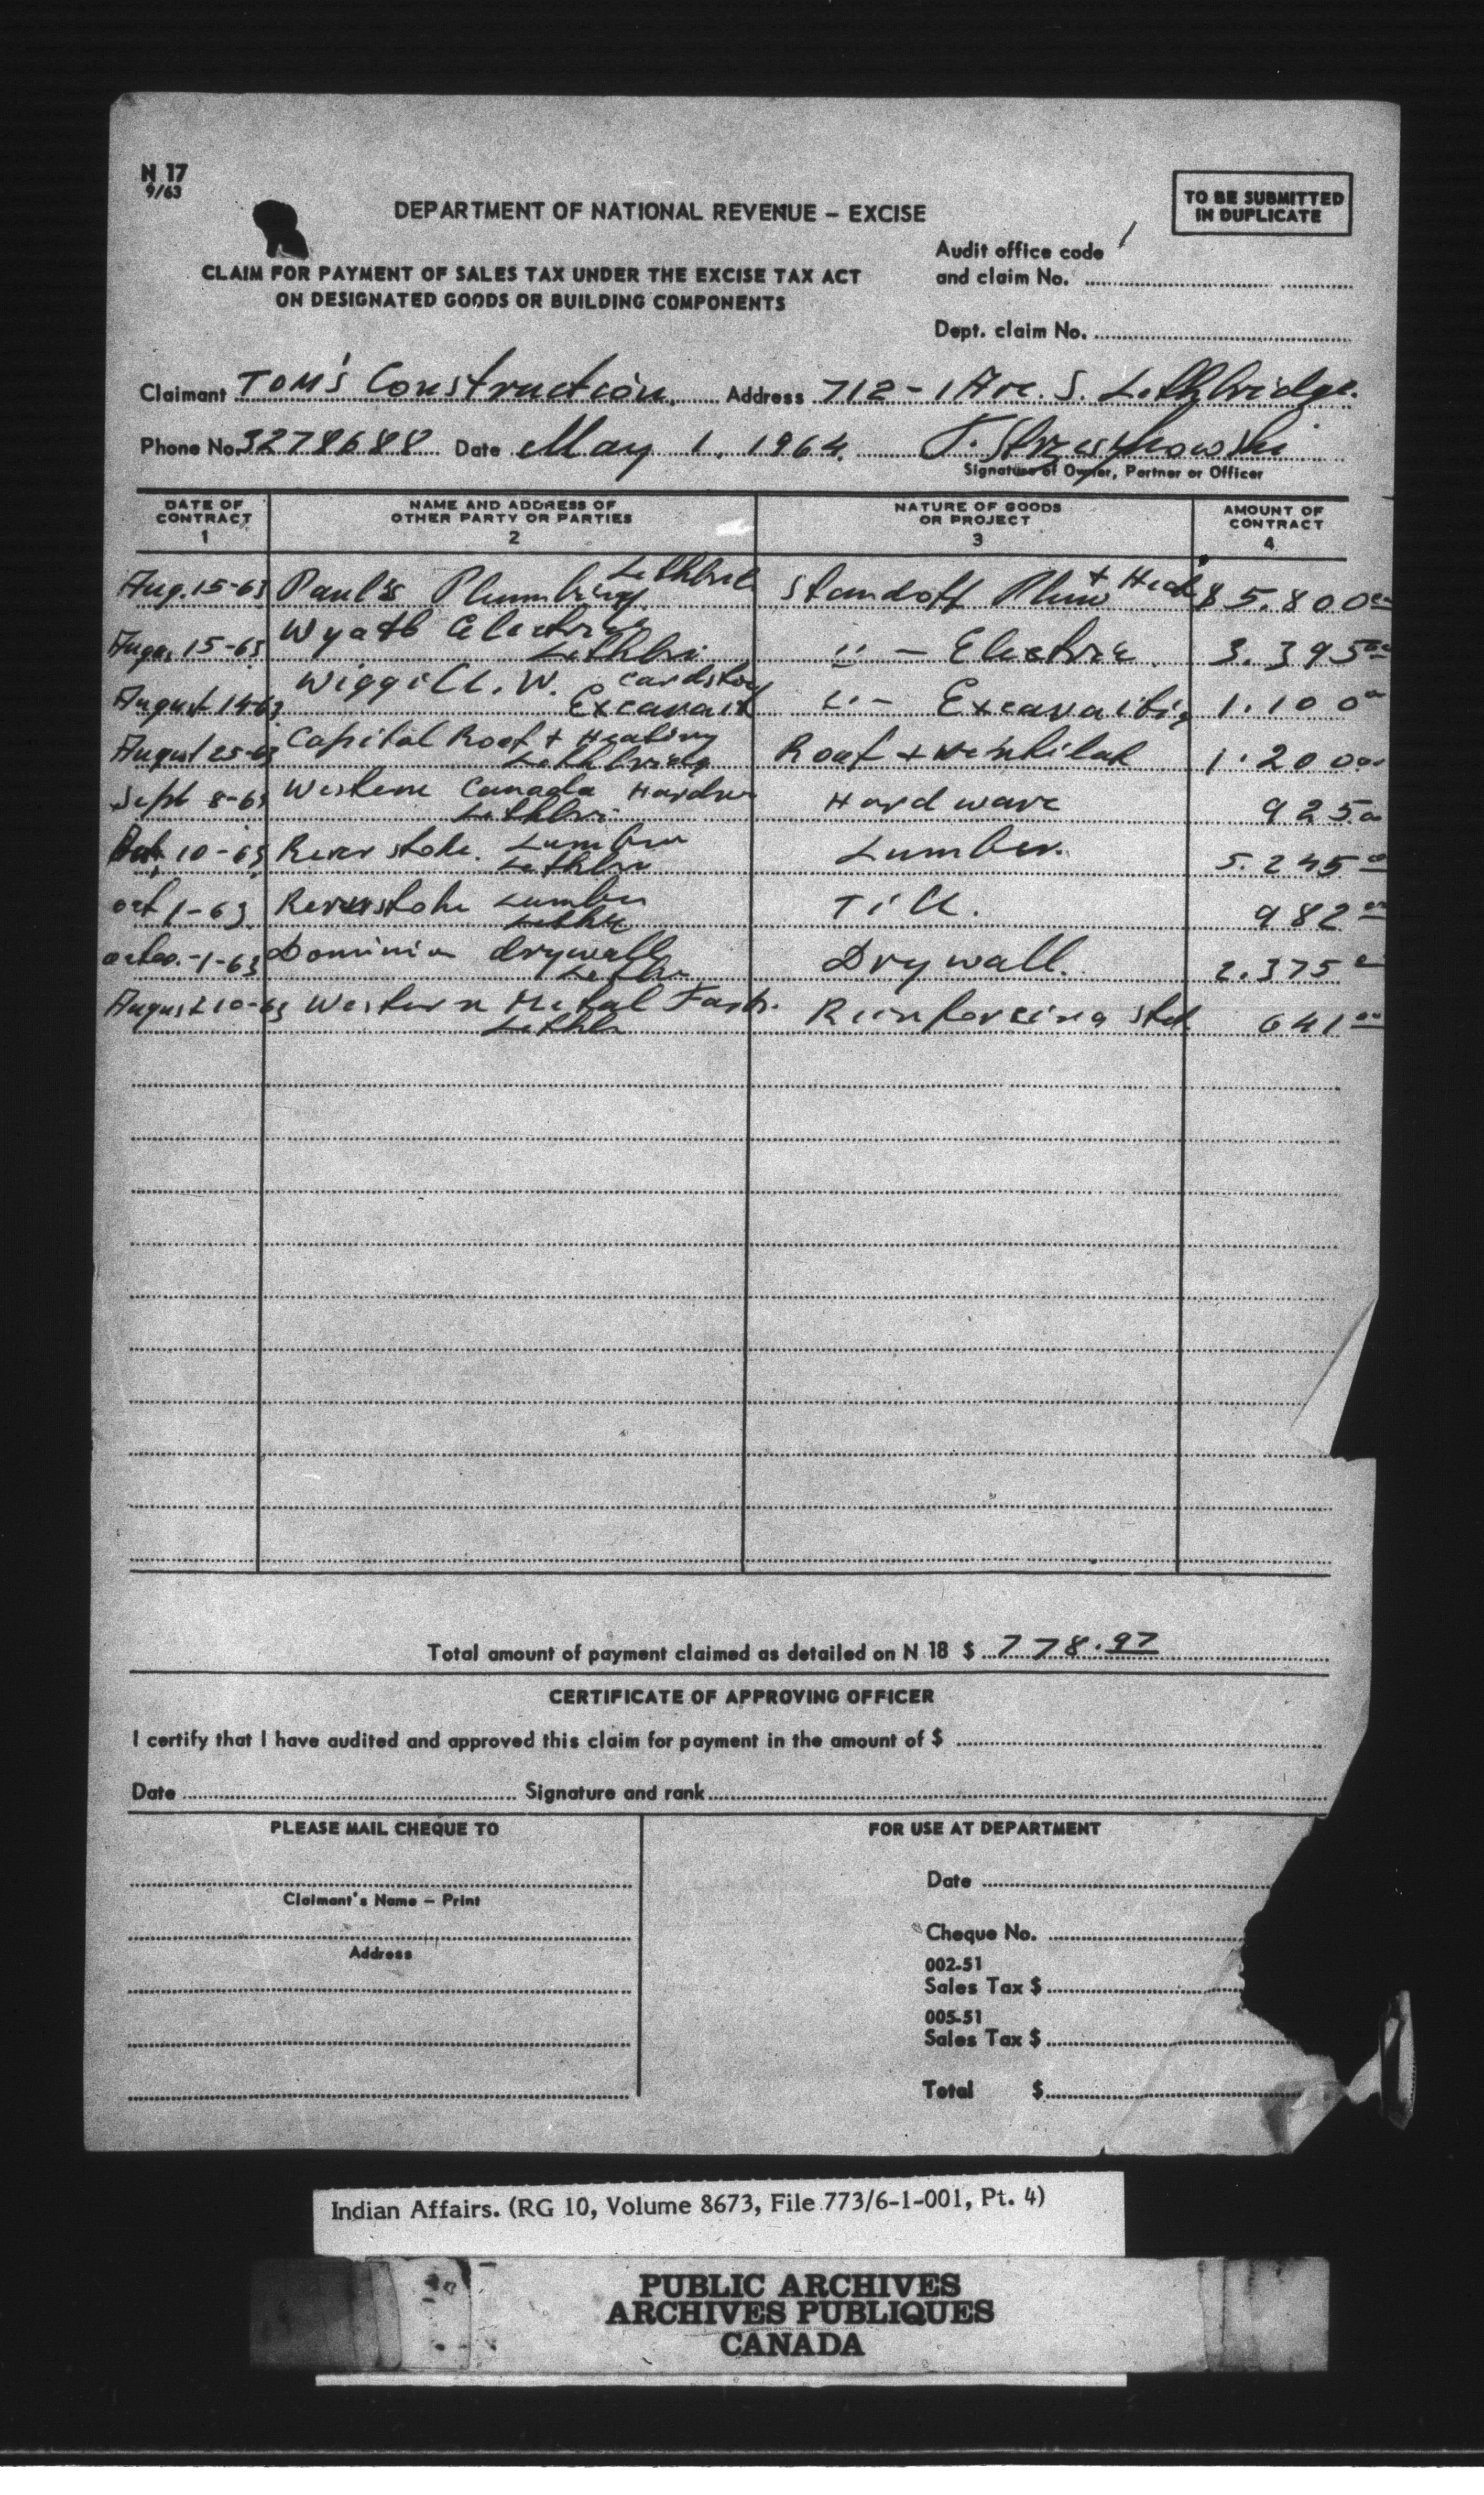 N 17
9/63
TO BE SUBMITTED
IN DUPLICATE
DEPARTMENT OF NATIONAL REVENUE – EXCISE
Audit office code 1
and claim No.
CLAIM FOR PAYMENT OF SALES TAX UNDER THE EXCISE TAX ACT
ON DESIGNATED GOODS OR BUILDING COMPONENTS
Dept. claim No.
Claimant TOM'S Construction. Address 712 - 1 Ave. S. Lethbridge.
Phone No. 3278688 Date May 1, 1964.
Signature of Owner, Partner or Officer
DATE OF CONTRACT 1 NAME AND ADDRESS OF OTHER PARTY OR PARTIES 2 NATURE OF GOODS OR PROJECT 3 AMOUNT OF CONTRACT 4
Aug. 15-63 Paul's Plumbing Standoff Plum + Heat $ 5.800 00
15-63 Wyatt Electric Lethbri " - Electric 3.395 00
August 14-63 W. " - 1.100
August 25-63 Capital Roof + Heating Roof + 1.200 00
Sept 8-63 Western Canada Hardw Lethbri Hardware 925.00
10-63 Lumber Lumber. 5.245 00
oct 1-63 Lumber 982 00
1-63 Dominion drywall Drywall. 2.375
August 10-63 Western Metal Reinforcing 641 00
Total amount of payment claimed as detailed on N 18 $ 778.97
CERTIFICATE OF APPROVING OFFICER
I certify that I have audited and approved this claim for payment in the amount of $
Date Signature and rank
PLEASE MAIL CHEQUE TO
FOR USE AT DEPARTMENT
Claimant's Name – Print
Address
Date
Cheque No.
002-51
Sales Tax $
005-51
Sales Tax $
Total $
Indian Affairs. (RG 10, Volume 8673, File 773/6-1-001, Pt. 4)
PUBLIC ARCHIVES
ARCHIVES PUBLIQUES
CANADA